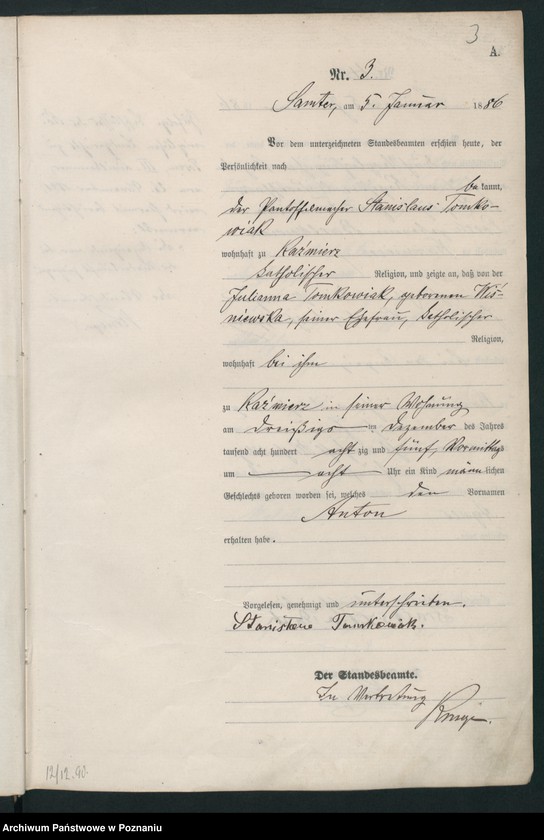 3
A.
Nr. 3.
Samter, am 5. Januar 1886
Vor dem unterzeichneten Standesbeamten erschien heute, der
Persönlichkeit nach
be kannt,
der Pantoffelmacher Stanislaus Tomko-
wiak
wohnhaft zu Kaźmierz
katholischer Religion, und zeigte an, daß von der
Julianna Tomkowiak, geborenen Wiś-
niewska, seiner Ehefrau, katholischer
Religion,
wohnhaft bei ihm
zu Kaźmierz in seiner Wohnung
am dreißigs ten Dezember des Jahres
tausend acht hundert acht zig und fünf, Vormittags
um acht Uhr ein Kind männlichen
Geschlechts geboren worden sei, welches den Vornamen
Anton
erhalten habe.
Vorgelesen, genehmigt und unterschrieben.
Tomkowiak.
Der Standesbeamte.
In Vertretung
12/12.90.
Archiwum Państwowe w Poznaniu